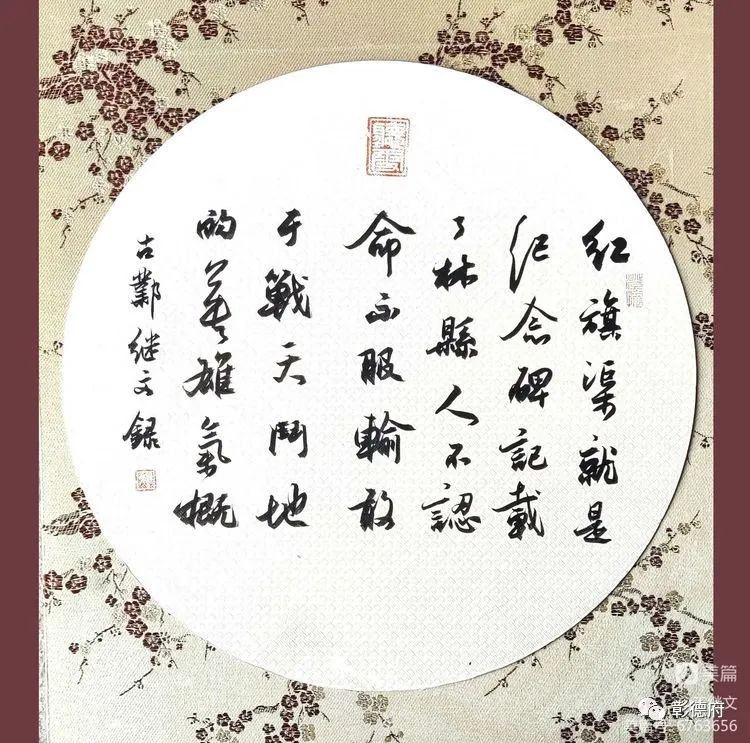 红旗渠就是
纪念碑記載
了林縣人不認
命不服輸敢
于戰天鬥地
的英雄氣概
古鄴继文録
美篇
彰德府
6763656